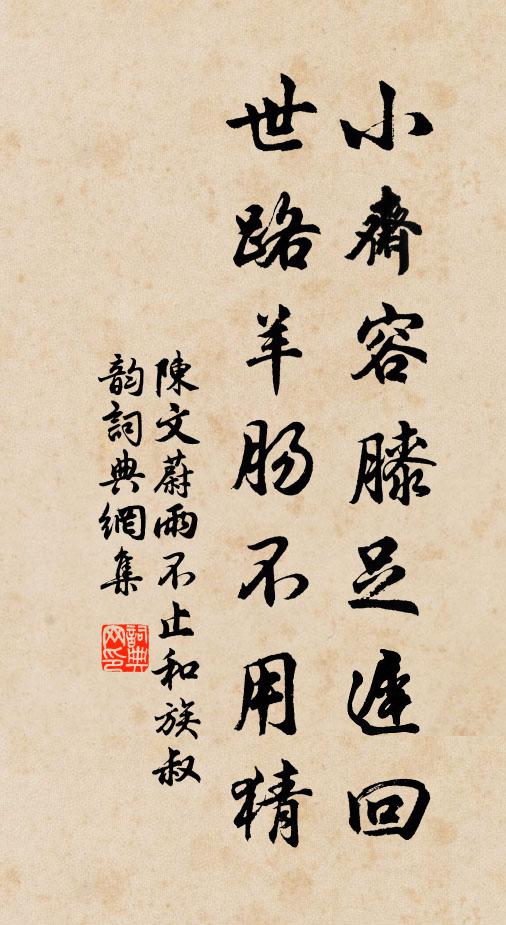 小齋容膝足遲回
世路羊腸不用猜
陳文蔚雨不止和族叔
韵詞典網集
詞典网印